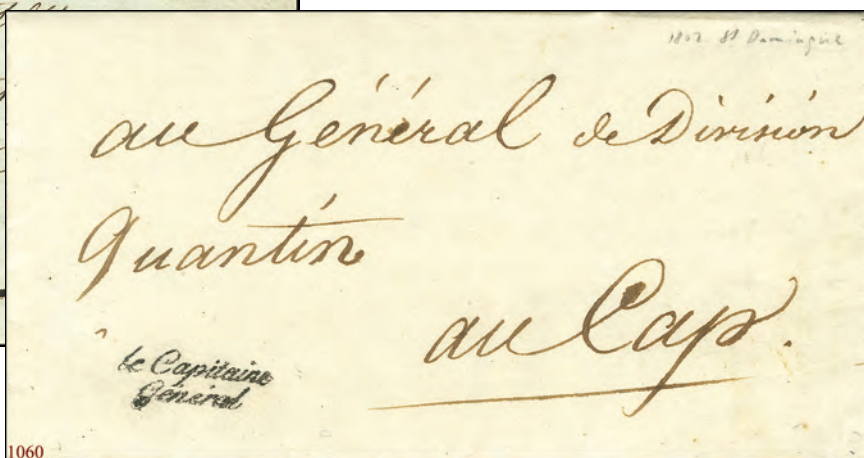 1802 St Domingue
au Général de Division
Quantin
au Cap.
le Capitaine
Général
1060